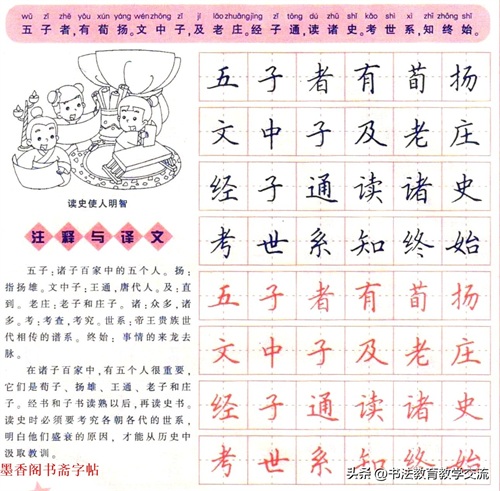 wǔ zǐ zhě yǒu xún yáng wén zhōng zǐ jí lǎo zhuāng jīng zǐ tōng dú zhū shǐ kǎo shì xì zhī zhōng shǐ
五子者,有荀扬。文中子,及老庄。经子通,读诸史。考世系,知终始。
读史使人明智
注释与译文
五子:诸子百家中的五个人。扬:
指扬雄。文中子:王通,唐代人。及:直
到。老庄:老子和庄子。诸:众多,诸
多。考:考查,考究。世系:帝王贵族世
代相传的谱系。终始:事情的来龙去
脉。
在诸子百家中,有五个人很重要,
它们是荀子、扬雄、王通、老子和庄
子。经书和子书读熟以后,再读史书。
读史时必须要考究各朝各代的世系,
明白他们盛衰的原因,才能从历史中
汲取教训。
墨香阁书斋字帖
五子者有荀扬
文中子及老庄
经子通读诸史
考世系知终始
五子者有荀扬
文中子及老庄
经子通读诸史
考世系知终始
头条 @书法教育教学交流